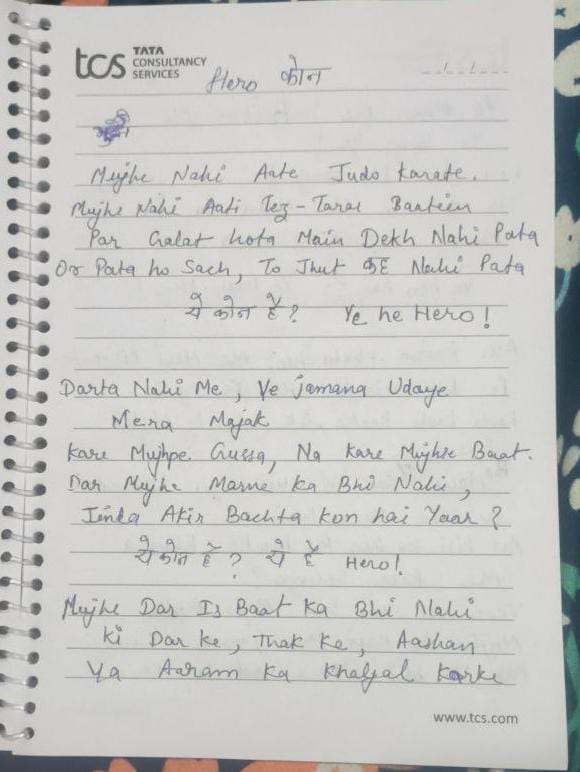 tcs TATA
CONSULTANCY
SERVICES
Hero कोन
Mujhe Nahi Aate Judo Karate.
Mujhe Nahi Aati Tez-Tarar Baatein
Par Galat hota Main Dekh Nahi Pata
Or Pata ho Sach, To Jhut कह Nahi Pata
ये कोन है? Ye he Hero!
Darta Nahi Me, Ye jamana Udaye
Mera Majak
Kare Mujhpe Gussa, Na Kare Mujhse Baat.
Dar Mujhe Marne Ka Bhi Nahi,
Jinda Akir Bachta Kon hai Yaar?
ये कोन है? ये है Hero!
Mujhe Dar Is Baat Ka Bhi Nahi
Ki Dar Ke, Thak Ke, Aashan
Ya Aaram Ka Khalyal Karke
www.tcs.com